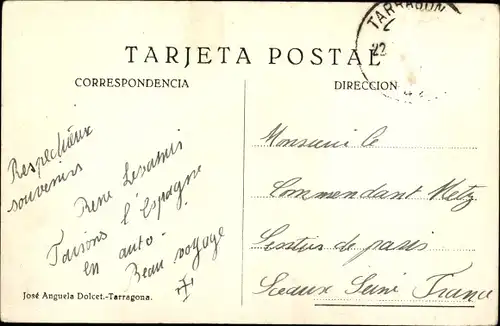 TARJETA POSTAL
CORRESPONDENCIA
DIRECCION
TARRAGON
22
Respectueux
souvenirs
Rene
Faisons l'Espagne
en auto.
Beau voyage
Monsieur le
Commendant Metz
de paris
Sceaux Seine France
José Anguela Dolcet.-Tarragona.